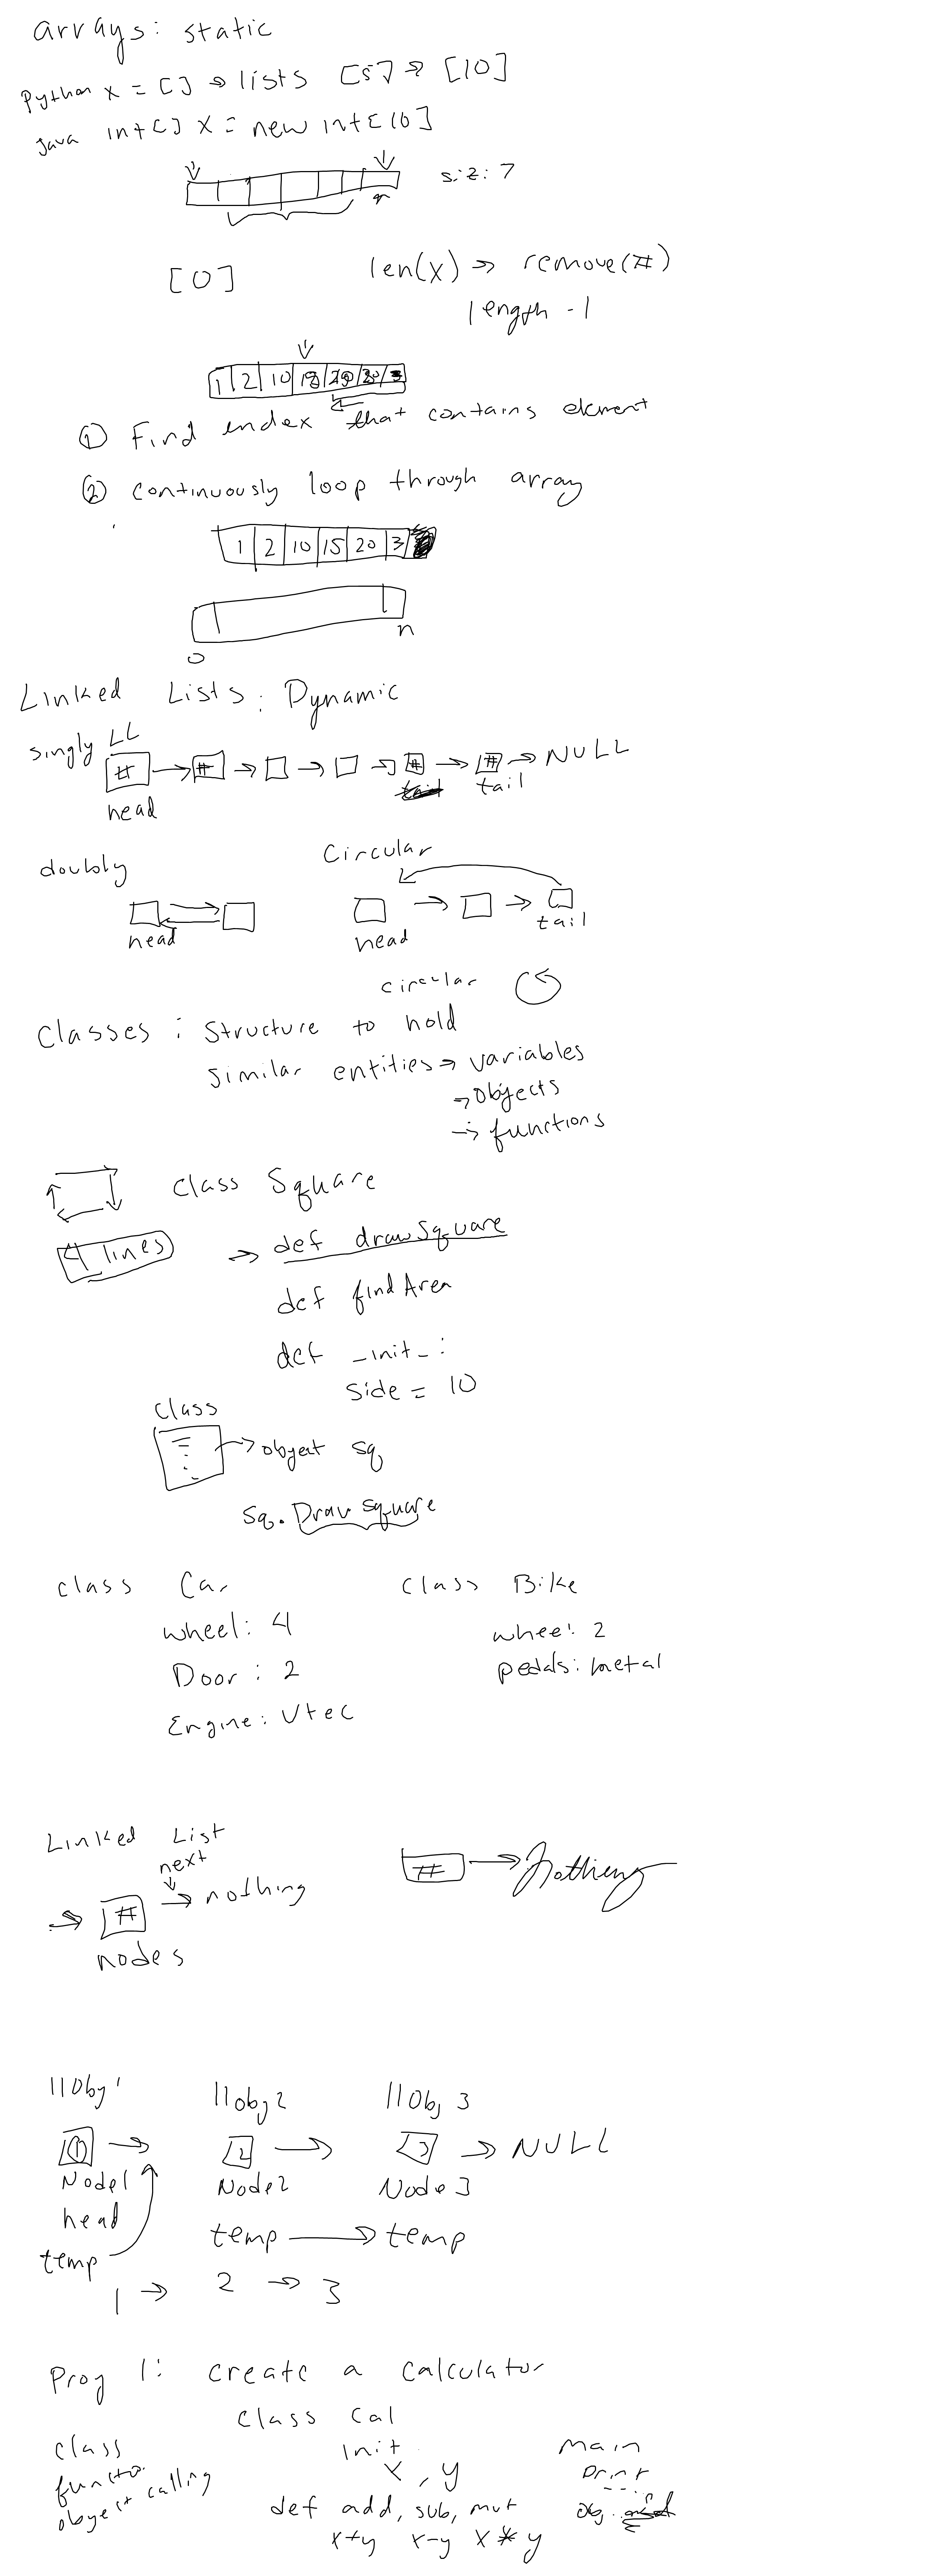 arrays: static
Python x = [] → lists [5] → [10]
Java int[] x = new int[10]
siz: 7
n
[0] len(x) → remove(#)
length - 1
1 2 10
① Find index that contains element
② continuously loop through array
1 2 10 15 20 3
0 n
Linked Lists: Dynamic
singly LL
# → # → → → # → # → NULL
head tail
doubly Circular
head head tail
circular
Classes: Structure to hold
similar entities → variables
→ objects
→ functions
class Square
4 lines → def drawSquare
def findArea
def _init_:
side = 10
Class
→ object sq
sq. Draw square
class Car class Bike
wheel: 4 wheel: 2
Door: 2 pedals: metal
Engine: Vtec
Linked List
next
→ # → nothing # → Nothing
nodes
llObj 1 llobj 2 llObj 3
1 → 2 → 3 → NULL
Node1 Node2 Node3
head
temp temp → temp
1 → 2 → 3
Prog 1: create a calculator
class Cal
class init main
x, y print
object calling def add, sub, mut obj.
x+y x-y x*y